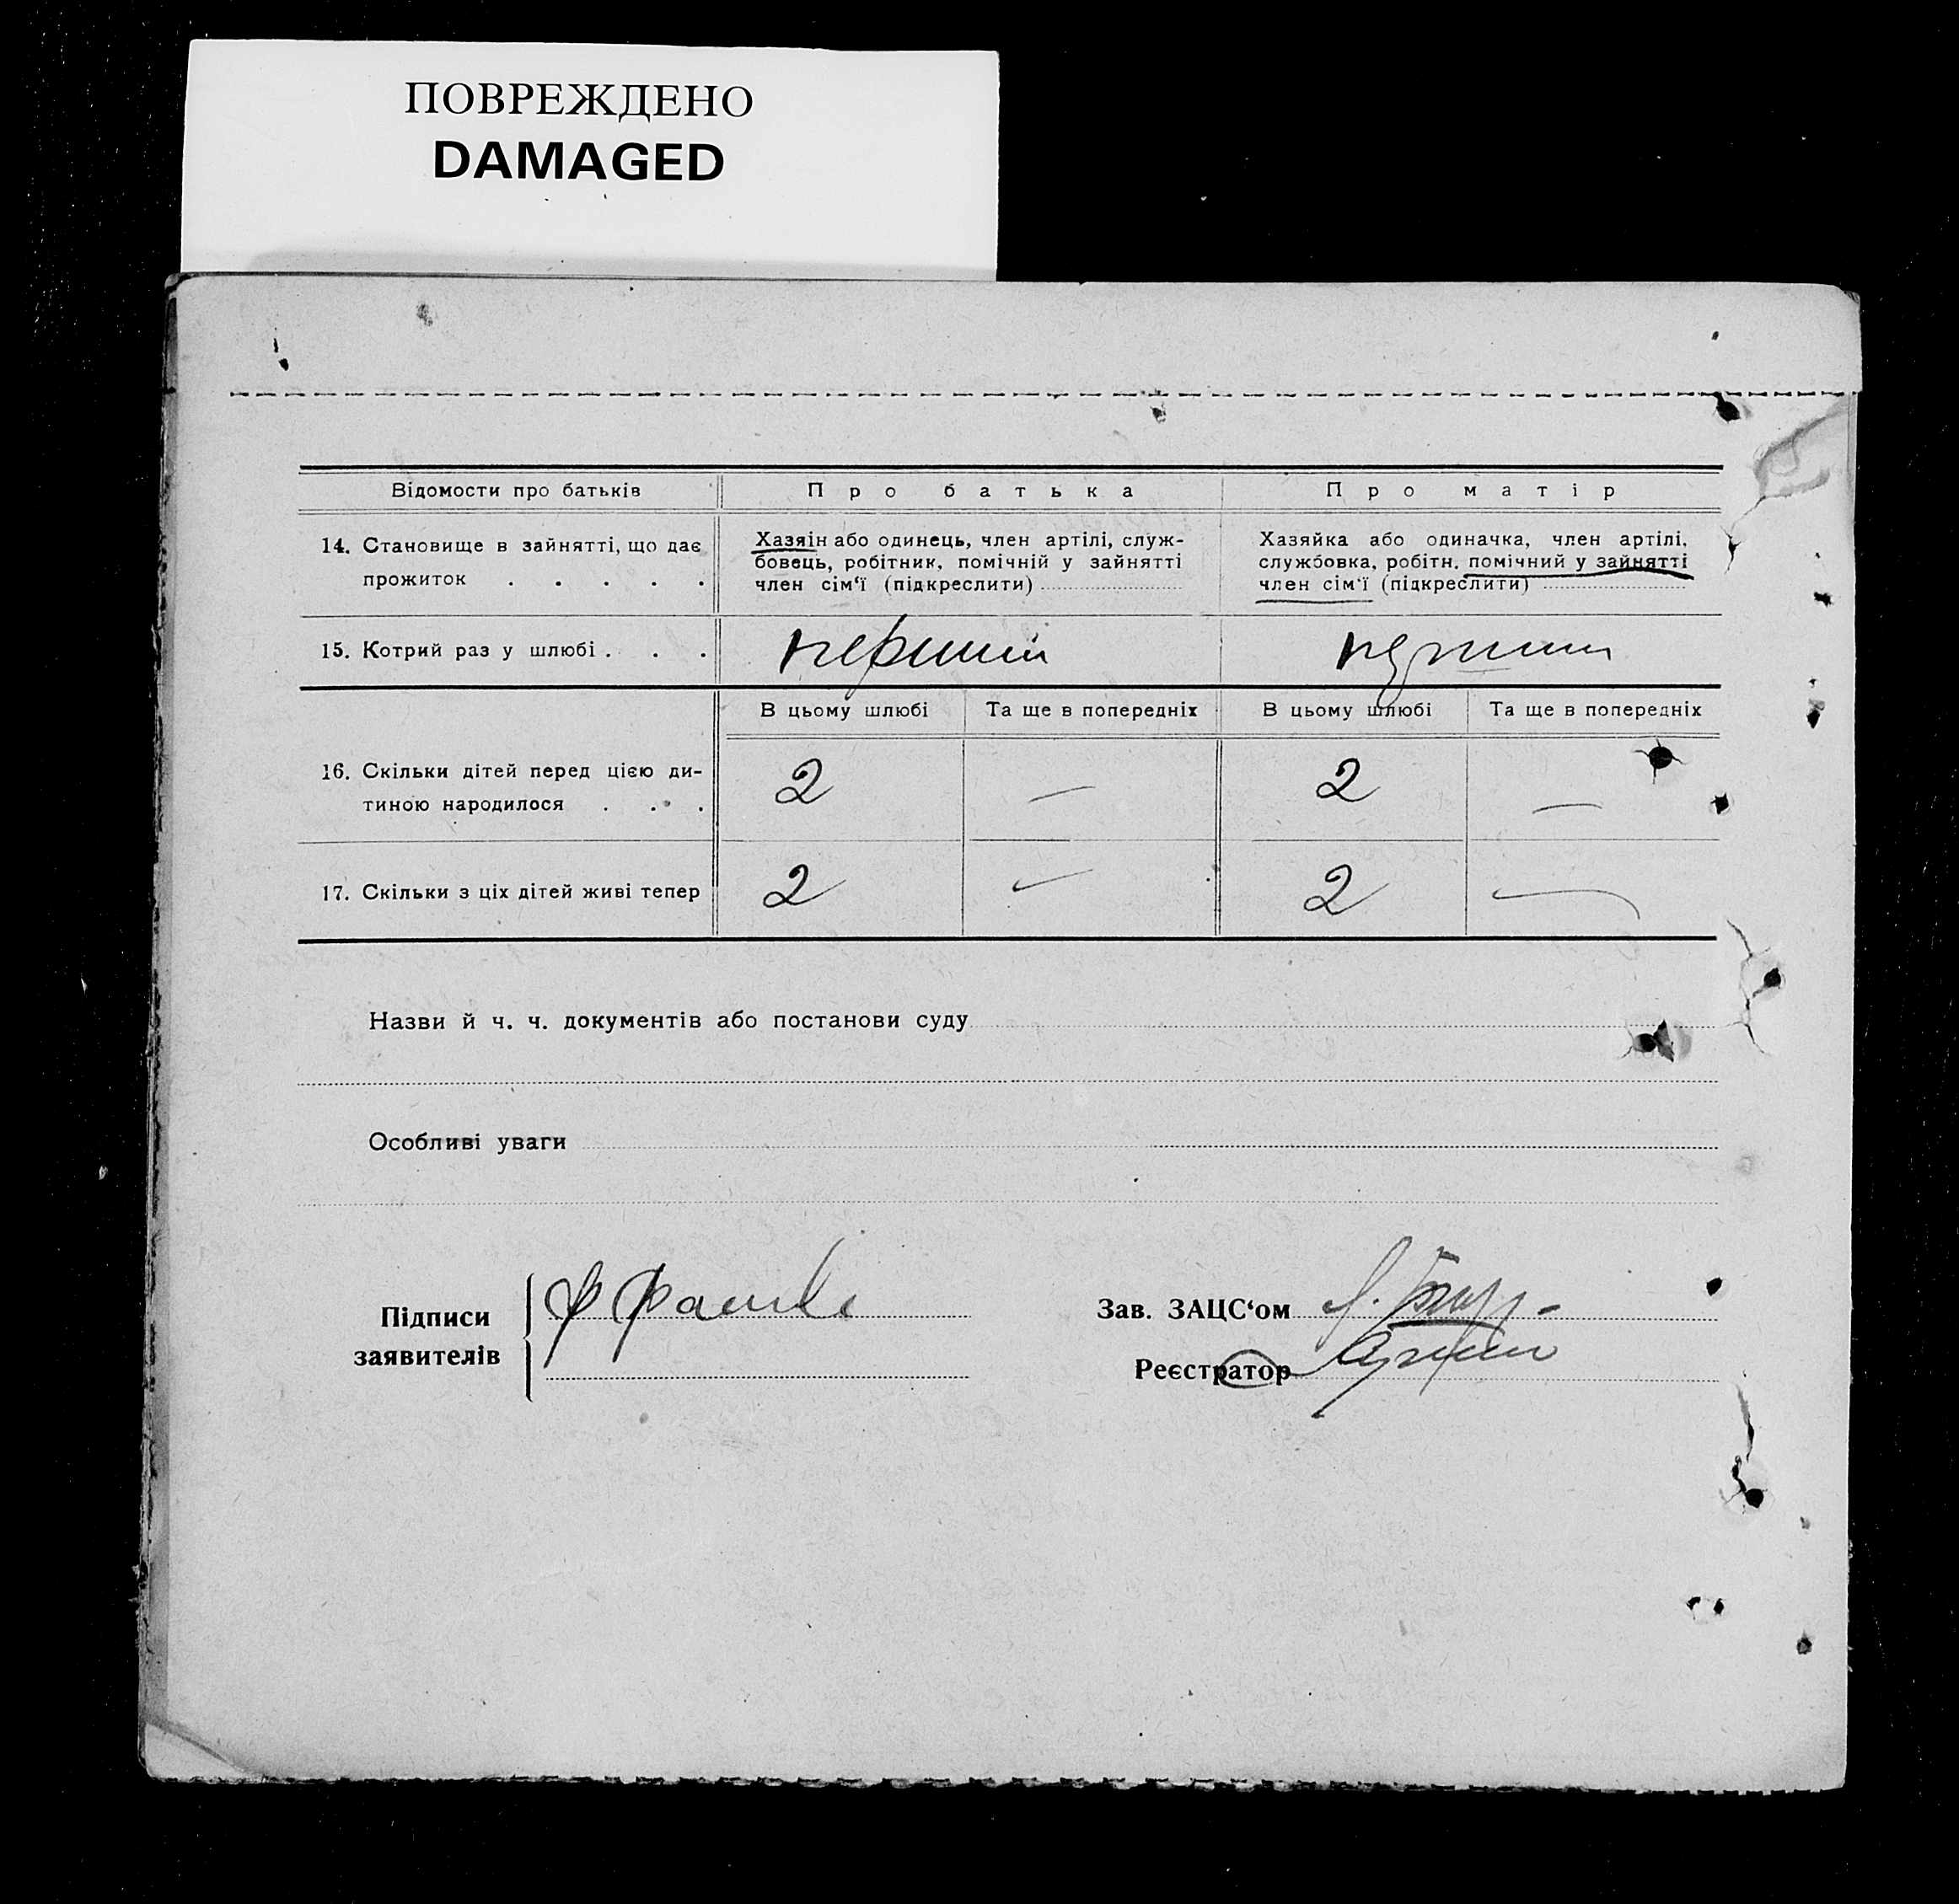 ПОВРЕЖДЕНО
DAMAGED
Відомости про батьків
Про батька
Про матір
14. Становище в зайнятті, що дає
прожиток . . . . .
Хазяїн або одинець, член артілі, служ-
бовець, робітник, помічній у зайнятті
член сім‘ї (підкреслити)
Хазяйка або одиначка, член артілі,
службовка, робітн. помічний у зайнятті
член сім‘ї (підкреслити)
15. Котрий раз у шлюбі . . .
перший
В цьому шлюбі
Та ще в попередніх
В цьому шлюбі
Та ще в попередніх
16. Скільки дітей перед цією ди-
тиною народилося . . .
2
—
2
—
17. Скільки з ціх дітей живі тепер
2
—
2
—
Назви й ч. ч. документів або постанови суду
Особливі уваги
Підписи
заявителів
Зав. ЗАЦС‘ом
Реєстратор